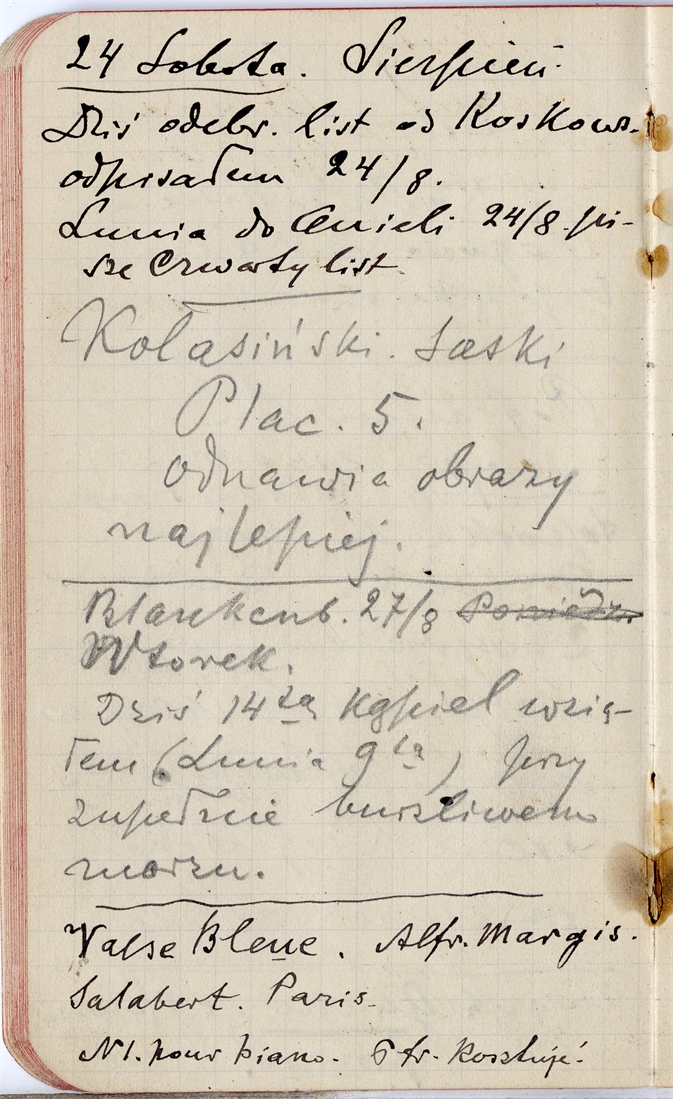 24 Sobota. Sierpień.
Dziś odebr. list od Koskows.
odpisałem 24/8.
Lunia do Anieli 24/8. pi-
sze czwarty list
Kolasiński. Saski
Plac. 5.
odnawia obrazy
najlepiej.
Blankenb. 27/8 Poniedz.
Wtorek.
Dziś 14tą kąpiel wzią-
łem (Lunia 9tą) przy
zupełnie burzliwem
morzu.
Valse Bleue. Alfr. Margis.
Salabert. Paris.
N1. pour piano. 6 fr. Kosztuje!